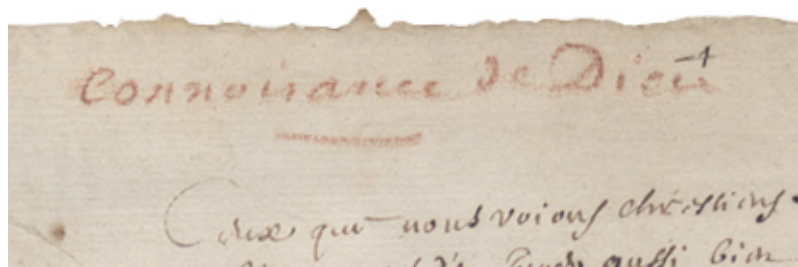 Connoisance de Dieu
Ceux que nous voions chrestiens
aussi bien